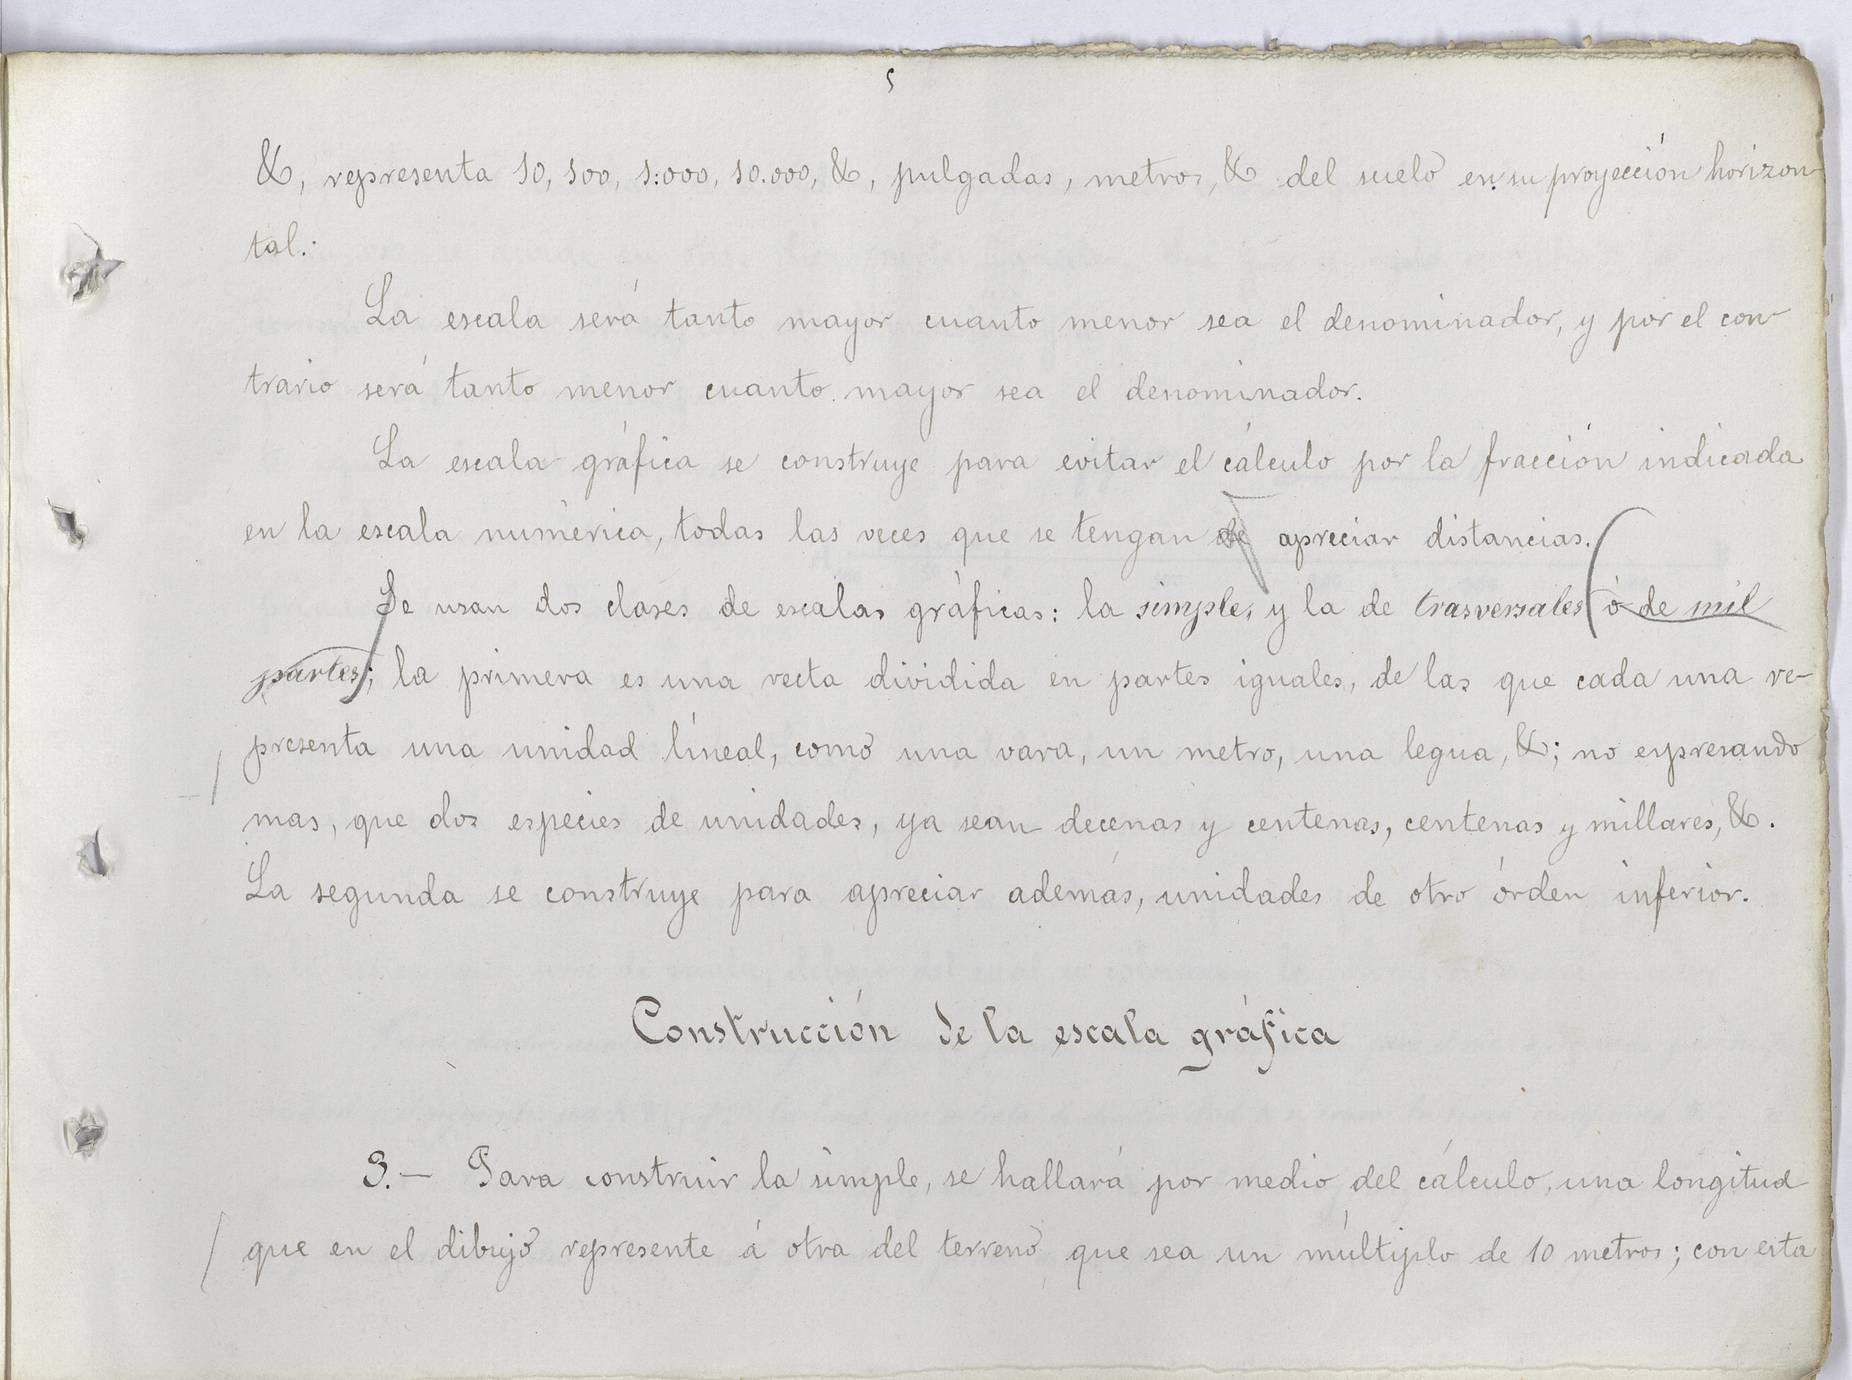 5
&, representa 10, 100, 1:000, 10.000, &, pulgadas, metros, & del suelo en su proyección horizon
tal.
La escala será tanto mayor cuanto menor sea el denominador, y por el con-
trario será tanto menor cuanto mayor sea el denominador.
La escala gráfica se construye para evitar el cálculo por la fracción indicada
en la escala numérica, todas las veces que se tengan de apreciar distancias.
Se usan dos clases de escalas gráficas: la simple, y la de trasversales ó de mil
partes; la primera es una recta dividida en partes iguales, de las que cada una re-
presenta una unidad líneal, como una vara, un metro, una legua, &; no espresando
mas, que dos especies de unidades, ya sean decenas y centenas, centenas y millares, &.
La segunda se construye para apreciar además, unidades de otro órden inferior.
Construcción de la escala gráfica
3.— Para construir la simple, se hallará por medio del cálculo, una longitud
que en el dibujo represente á otra del terreno que sea un múltiplo de 10 metros; con esta